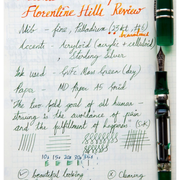 Florentine Hills Review
Nib - fine, Palladium (23kt, #6)
Accents - Acryloid (acrylic + celluloid)
Sterling Silver
Ink used - GvFC Moss Green (dry)
Paper - MD Paper A5 Grid
The two fold goal of all human
striving is the avoidance of pain
and the fulfillment of happiness
beautiful looking
Cleaning